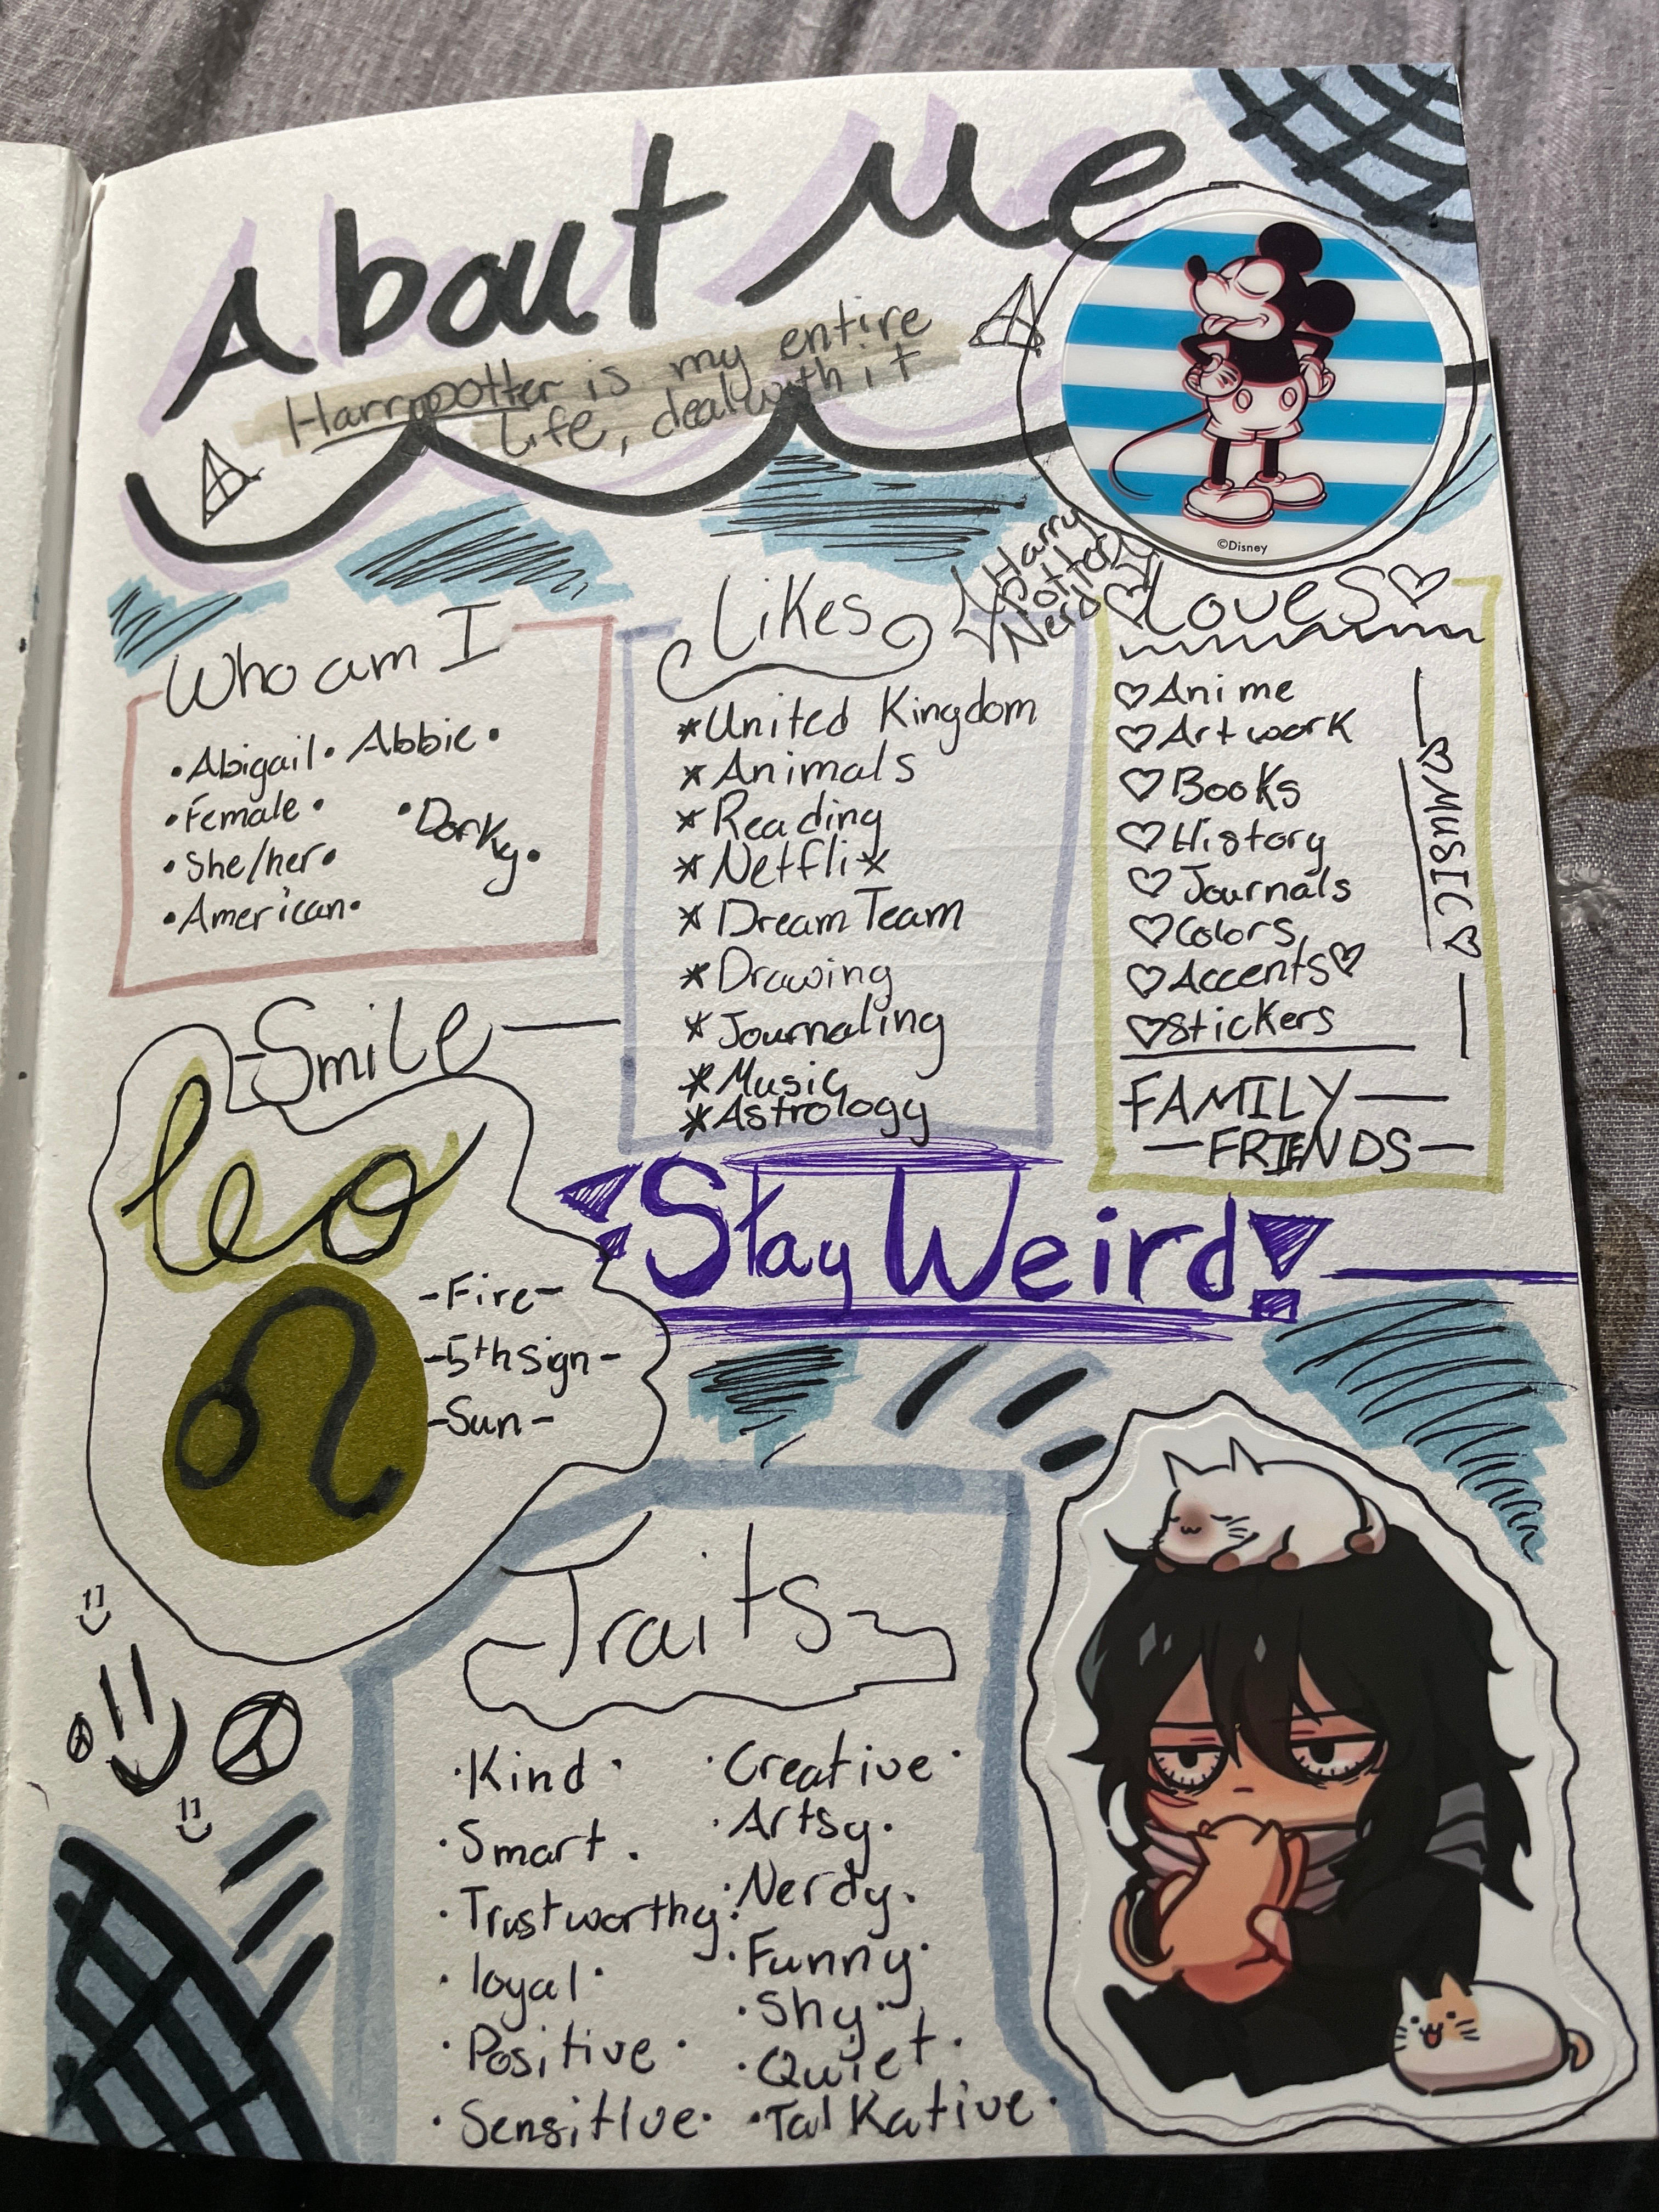 About Me
Harrypotter is my entire
Life, deal with it
©Disney
Harry
Potter
Nerd
Who am I
•Abigail• Abbie•
•Female•
•Dorky•
•She/her•
•American•
Likes
*United Kingdom
*Animals
*Reading
*Netflix
*Dream Team
*Drawing
*Journaling
*Music
*Astrology
♡Loves♡
♡Anime
♡Artwork
♡Books
♡History
♡Journals
♡Colors
♡Accents♡
♡Stickers
♡MUSIC♡
FAMILY—
—FRIENDS—
-Smile
leo
♌
-Fire-
-5th sign-
-Sun-
Stay Weird!
Traits
•Kind•
•Smart.
•Trustworthy•
•loyal•
•Positive•
•Sensitive•
•Creative•
•Artsy.
•Nerdy.
•Funny•
•Shy•
•Quiet.
•Talkative•